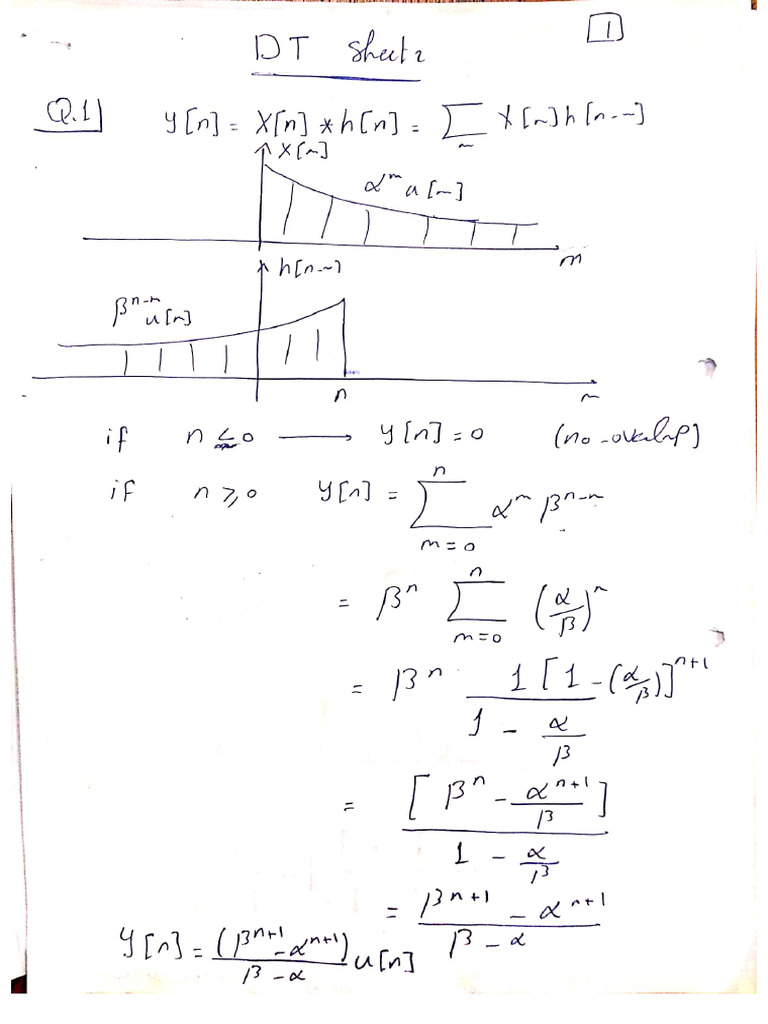 1
DT Sheet 2
Q.1 y[n] = x[n] * h[n] = ∑ₘ x[m] h[n-m]
x[m]
α^m u[m]
m
h[n-m]
β^{n-m} u[n]
n
m
if n ≤ 0 ⟶ y[n] = 0 (no-overlap)
if n ≥ 0 y[n] = ∑_{m=0}^{n} α^m β^{n-m}
= β^n ∑_{m=0}^{n} (α/β)^m
= β^n · 1 [1 - (α/β)]^{n+1} / (1 - α/β)
= [β^n - α^{n+1}/β] / (1 - α/β)
= (β^{n+1} - α^{n+1}) / (β - α)
y[n] = (β^{n+1} - α^{n+1}) / (β - α) u[n]